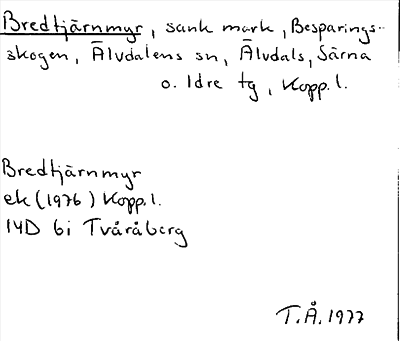 Bredtjärnmyr, sank mark, Besparings-
skogen, Älvdalens sn, Älvdals, Särna
o. Idre tg, Kopp. l.
Bredtjärnmyr
ek (1976) Kopp. l.
14D 6i Tvåråberg
T.Å. 1977